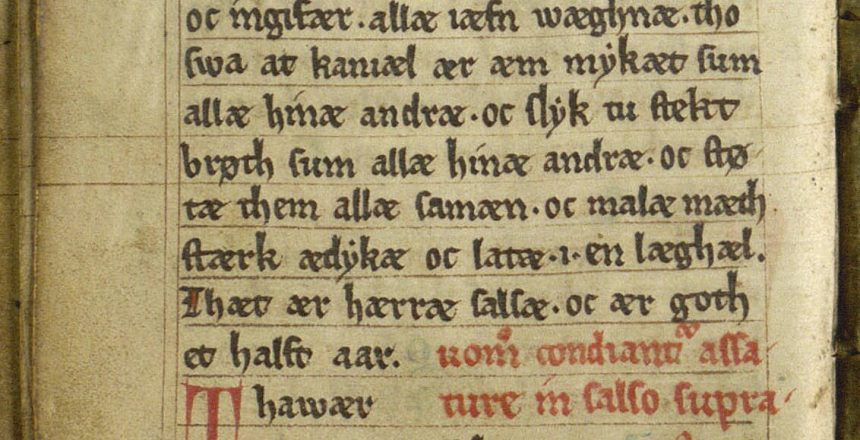 oc ingifær. allæ iæfn wæghnæ. tho
swa at kaniæl ær æm mykæt sum
allæ hinæ andræ. oc slyk tu stekt
brøth sum allæ hinæ andræ. oc stø
tæ them allæ samæn. oc malæ mæth
stærk ædykæ oc latæ .i. en læghæl.
Thæt ær hærræ salsæ. oc ær goth
et halft aar. Quom̄ condiant᷑ assa
Thawær ture in salso supra